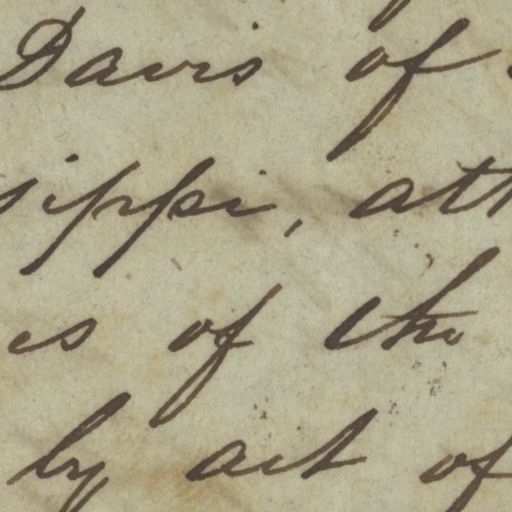 Davis of
sippi, att
es of the
by act of